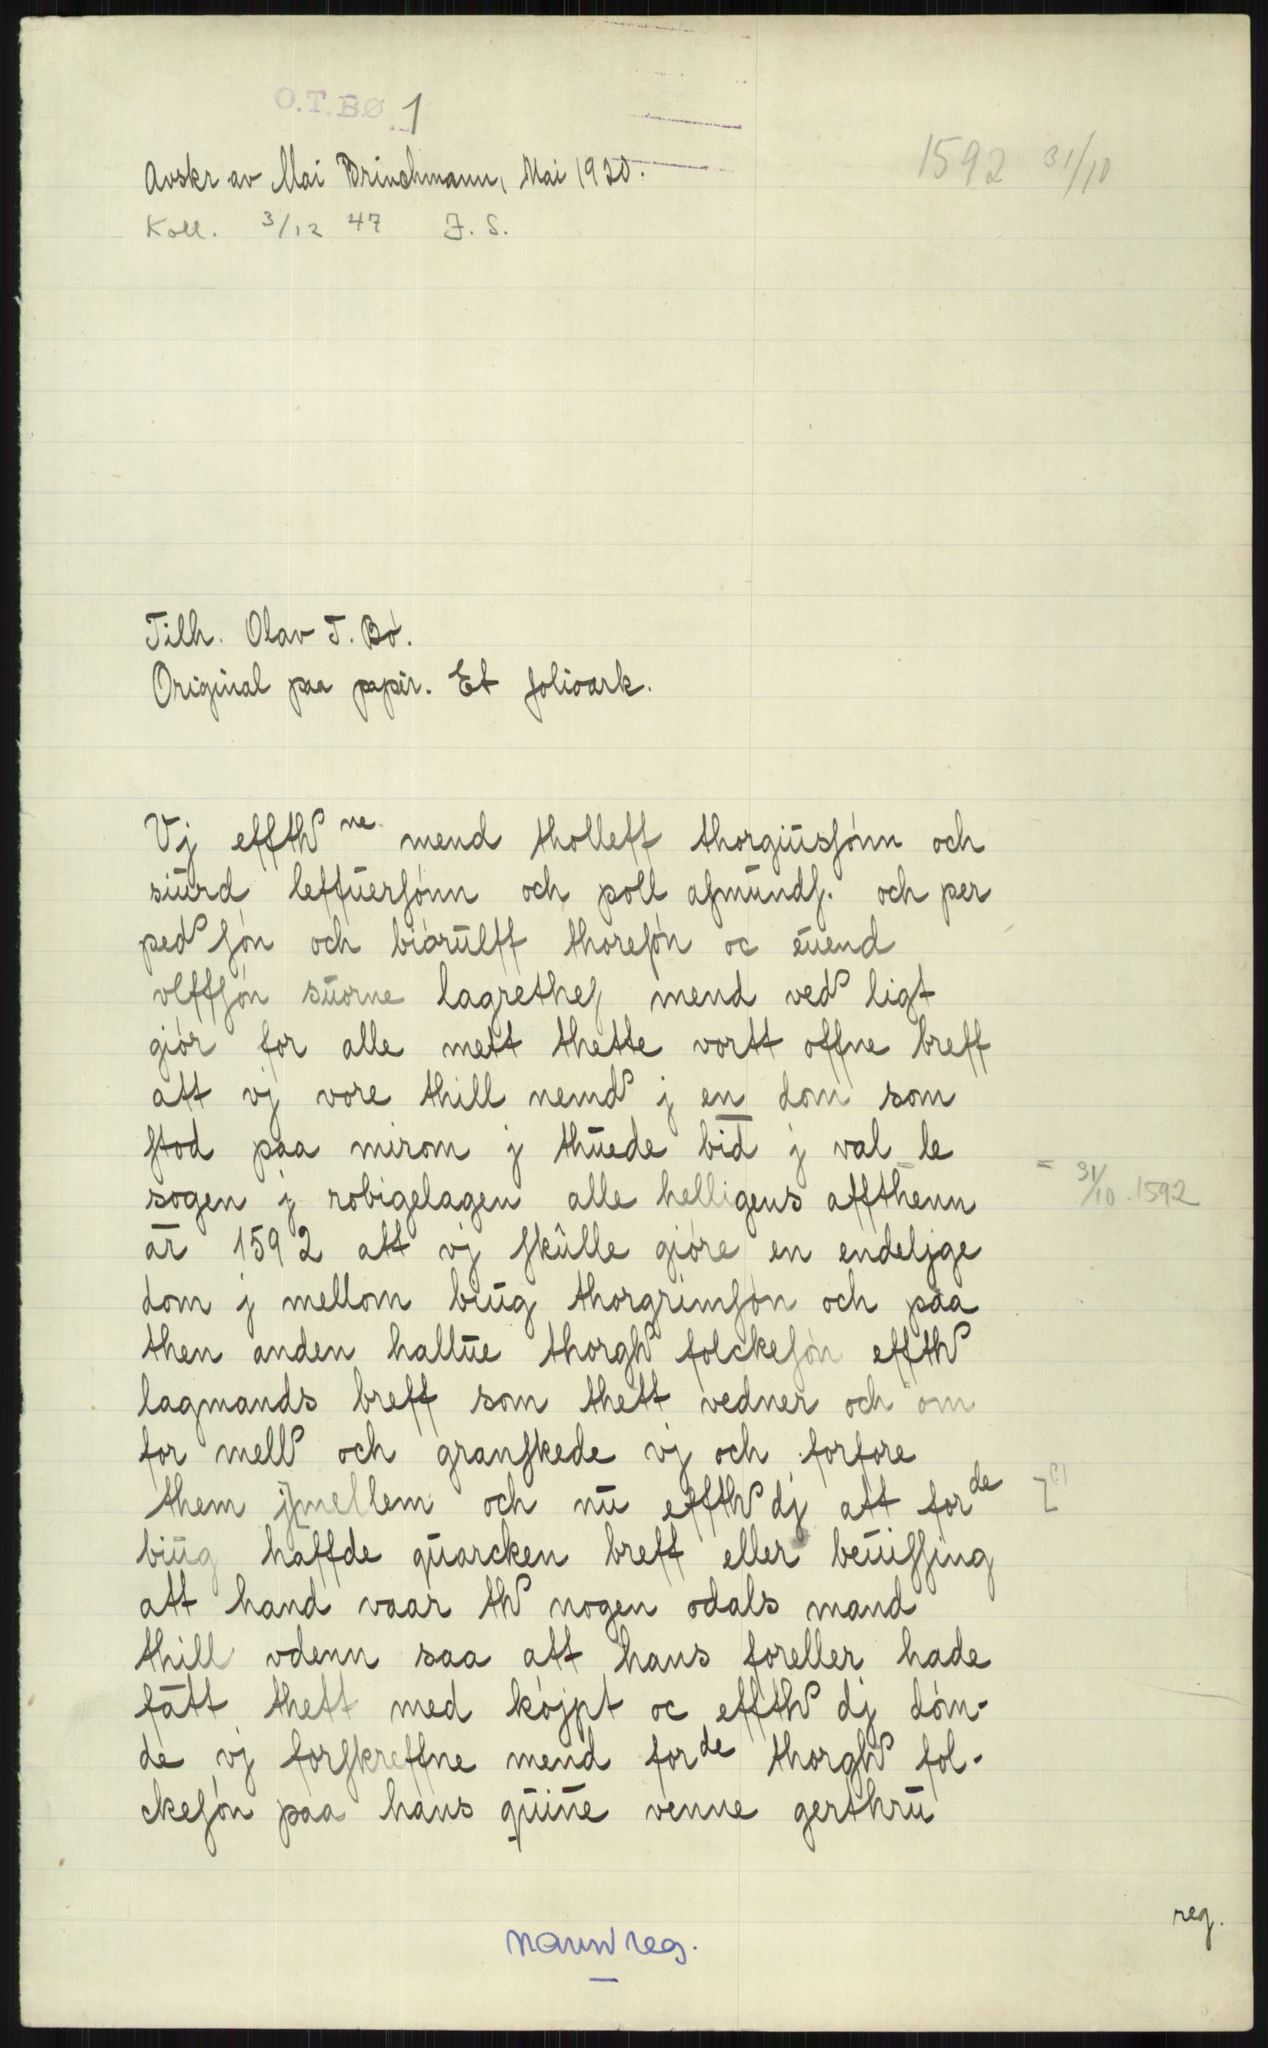 O.T.BØ. 1
1592 31/10
Avskr av Mai Brinchmann, Mai 1920.
Koll. 3/12 47 J. S.
Tilh. Olav T. Bø.
Original paa papir. Et folioark.
Vj effth ne mend tholleff thorgiusſønn och
siurd leffuerſønn och poll aſmundſ. och per
ped ſøn och biørulff thoreſøn oc euend
vlffſøn suorne lagretheſ mend ved ligt
giør for alle mett thette vortt offne breff
att vj vore thill nemd j en dom som
ſtod paa mirom j thuede bid j val le
= 31/10.1592
sogen j robigelagen alle helligens affthenn
ar 1592 att vj ſkulle giøre en endeljge
dom j mellom biug thorgrimſøn och paa
then anden hallue thorgh folckeſøn effth
lagmands breff som thett vedner och om
for mell och granſkede vj och forfore
them jmellem och nu effth dj att for de
biug haffde quarcken breff eller beuiſſing
att hand vaar th nogen odals mand
thill vdenn saa att hans foreller hade
fatt thett med køjpt oc effth dj døm-
de vj forſkreffne mend for de thorgh fol-
ckeſøn paa hans quine venne gerthru
reg.
navnreg.